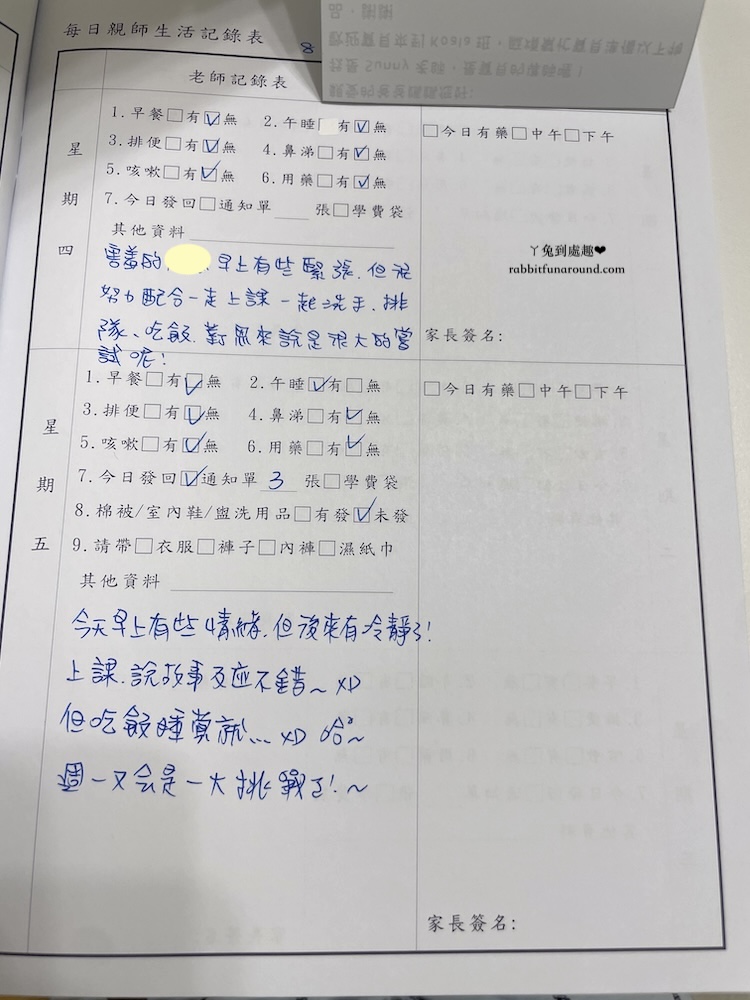 每日親師生活記錄表
8
老師記錄表
星期四
1.早餐□有☑無 2.午睡□有☑無
3.排便□有☑無 4.鼻涕□有☑無
5.咳嗽□有☑無 6.用藥□有☑無
7.今日發回□通知單___張□學費袋
其他資料
害羞的 早上有些緊張.但很
努力配合一走上課一起洗手.排
隊、吃飯.對恩來說是很大的嘗
試呢!
□今日有藥□中午□下午
丫兔到處趣❤
rabbitfunaround.com
家長簽名:
星期五
1.早餐□有☑無 2.午睡☑有□無
3.排便□有☑無 4.鼻涕□有☑無
5.咳嗽□有☑無 6.用藥□有☑無
7.今日發回☑通知單 3 張□學費袋
8.棉被/室內鞋/盥洗用品□有發☑未發
9.請帶□衣服□褲子□內褲□濕紙巾
其他資料
今天早上有些情緒.但後來有冷靜了!
上課.說故事反應不錯~ XD
但吃飯睡覺就... XD 哈~
週一又会是一大挑戰了!~
□今日有藥□中午□下午
家長簽名: